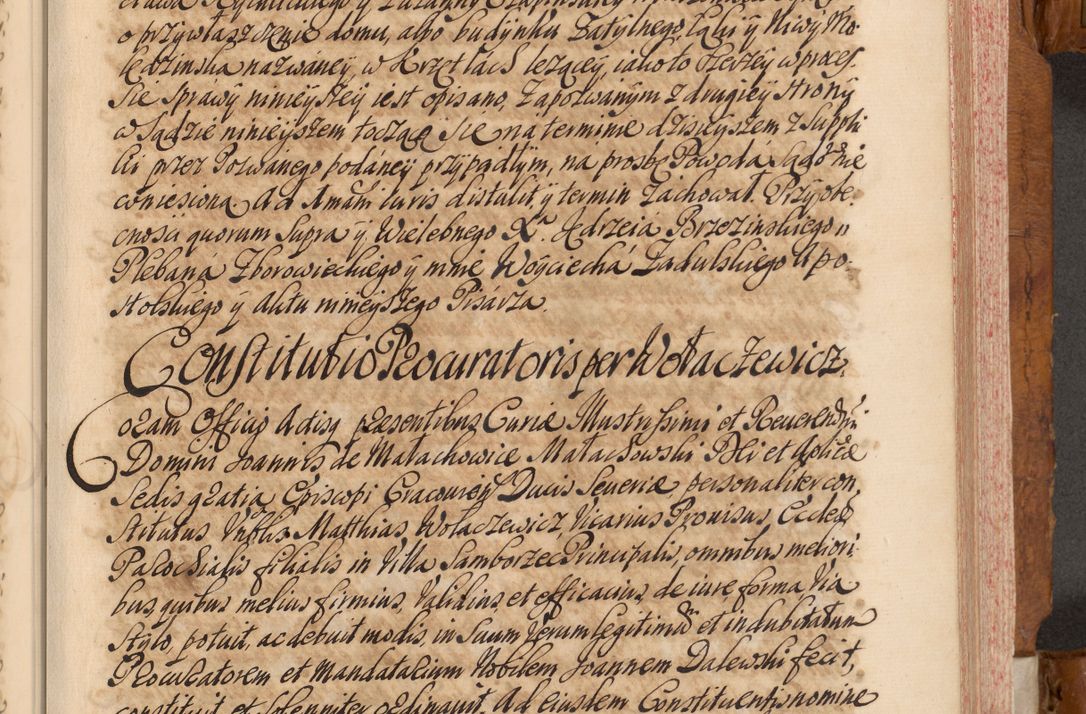 o przywłaszczenie domu, albo budynku Zatylnego, Łąki y Niwy Mo
ledzinska nazwaney, w Krzętlach lezącey, iako to szerzey w proces
sie sprawy ninieyszey iest opisano, Zapozwanym z drugiey strony
w Sądzie ninieyszem toczącę się na terminie dzisieyszem z Suppli
ki przez Pozwanego podaney przypadłym, na prosbę Powoda Sąd
wniesioną Ad Amãm iuris distulit y termin zachował. Przy obe
cnosci quorum supra y Wielebnego X. Jędrzeia Brzezinskiego
Plebana Zborowieckiego y mnie Woyciecha Zakulskiego Apo
stolskiego y Aktu ninieyszego Pisarza.
Constitutio Procuratoris per Wołaczewicz.
Coram Officio Actisq presentibus Curiæ Illustrissimi et Reverendssi
Domini Joannis de Małachowice Małachowski Dei et Aplicæ
Sedis gratia Episcopi Cracovien Ducis Severiæ personaliter con
stitutus Matthias Wołaczewicz, Vicarius Provisus, Eccles
Parochialis filialis in Villa Samborzec Principalis, omnibus meliori
bus, quibus melius firmius, Validius, et efficacius, de iure forma Via
stylo, potuit, ac debuit modis, in suum Verum legitimũ et indubitatum
Procuratorem et Mandatarium Nobilem Joannem Dalewski fecit,
constituit et solenniter ordinavit. Ad eiusdem Constituentis nomine